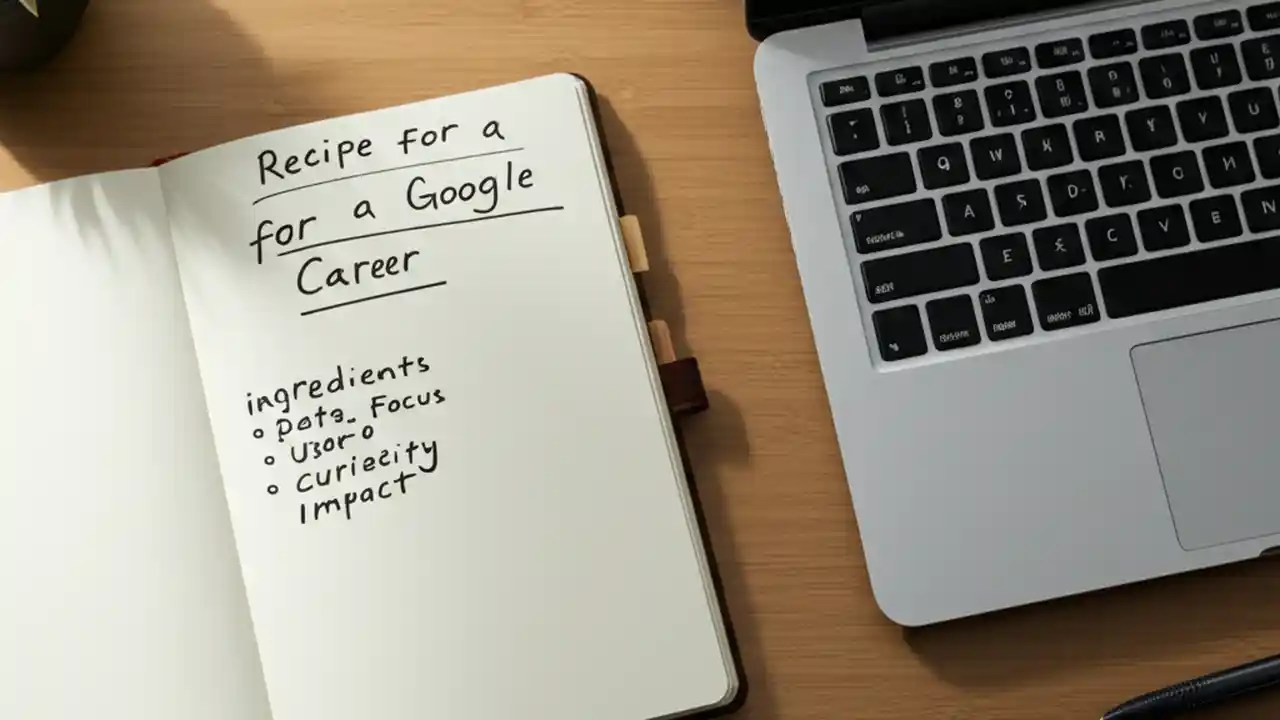 Recipe for a
for a Google
Career
ingredients
• Data. Focus
• User o
• Curiecity
Impact